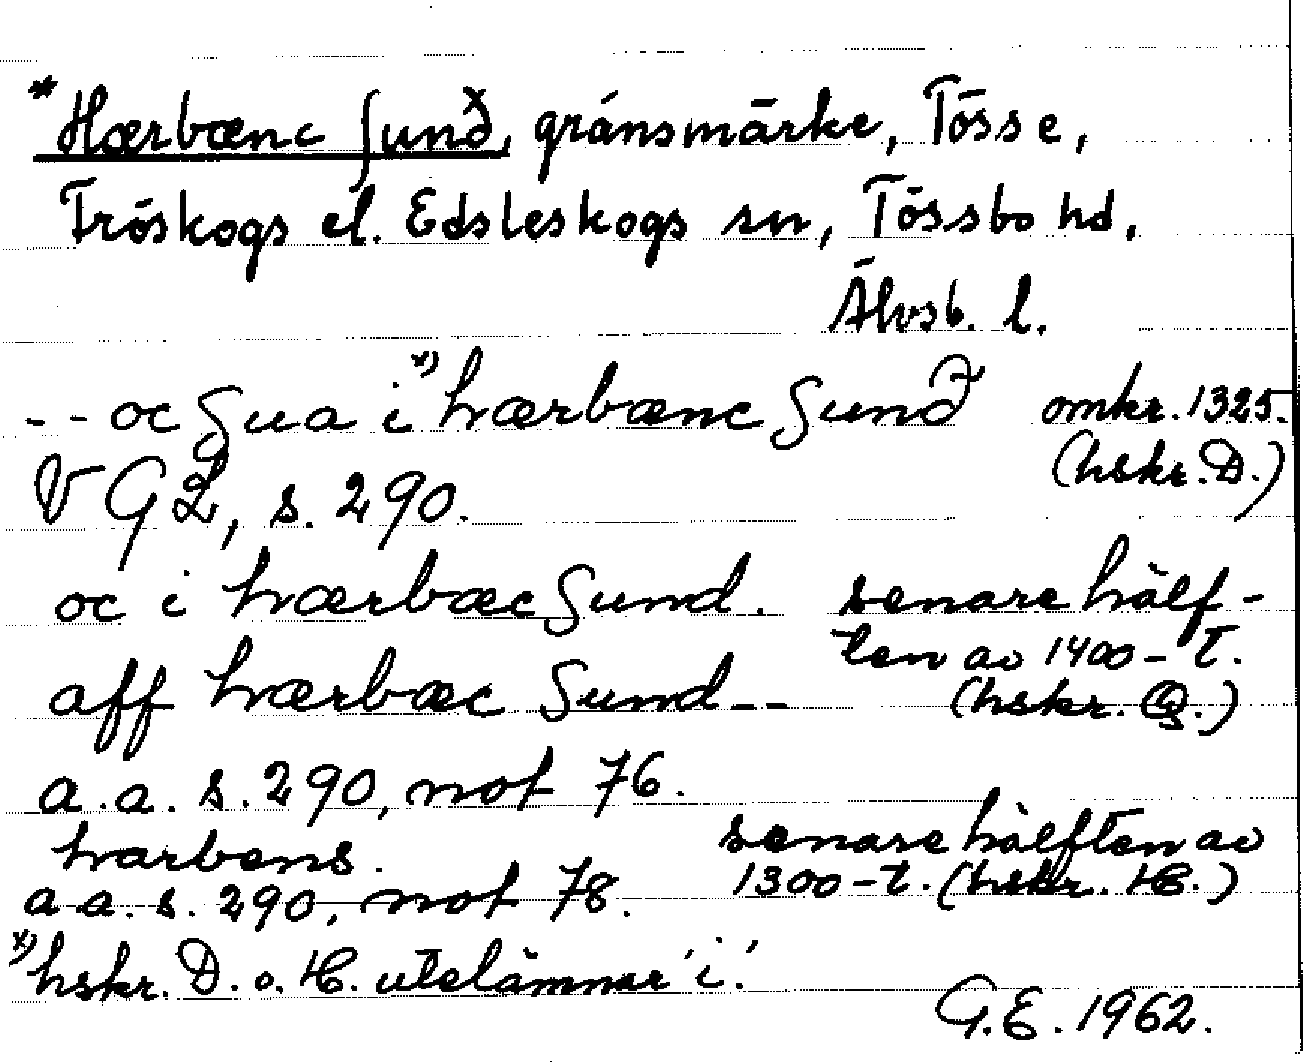 *Hærbænc ſund, gränsmärke, Tösse,
Fröskogs el. Edsleskogs sn, Tössbo hd,
Älvsb. l.
-- oc ſua i *) hærbænc ſund omkr. 1325.
VGL, s. 290. (hskr. D.)
oc i hærbæc ſund. senare hälf-
ten av 1400-t.
aff hærbæc ſund -- (hskr. G.)
a.a. s. 290, not 76.
harbens. senare hälften av
a.a. s. 290, not 78. 1300-t. (hskr. H.)
*) hskr. D. o. H. utelämnar 'i'.
G.E. 1962.